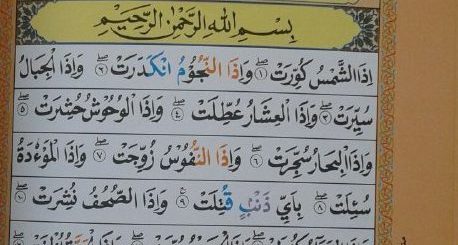 بِسْمِ اللهِ الرَّحْمٰنِ الرَّحِيْمِ
اِذَا الشَّمْسُ كُوِّرَتْ ۝١ وَاِذَا النُّجُوْمُ انْكَدَرَتْ ۝٢ وَاِذَا الْجِبَالُ
سُيِّرَتْ ۝٣ وَاِذَا الْعِشَارُ عُطِّلَتْ ۝٤ وَاِذَا الْوُحُوْشُ حُشِرَتْ ۝٥
وَاِذَا الْبِحَارُ سُجِّرَتْ ۝٦ وَاِذَا النُّفُوْسُ زُوِّجَتْ ۝٧ وَاِذَا الْمَوْءٗدَةُ
سُئِلَتْ ۝٨ بِاَيِّ ذَنْۢبٍ قُتِلَتْ ۝٩ وَاِذَا الصُّحُفُ نُشِرَتْ ۝١٠